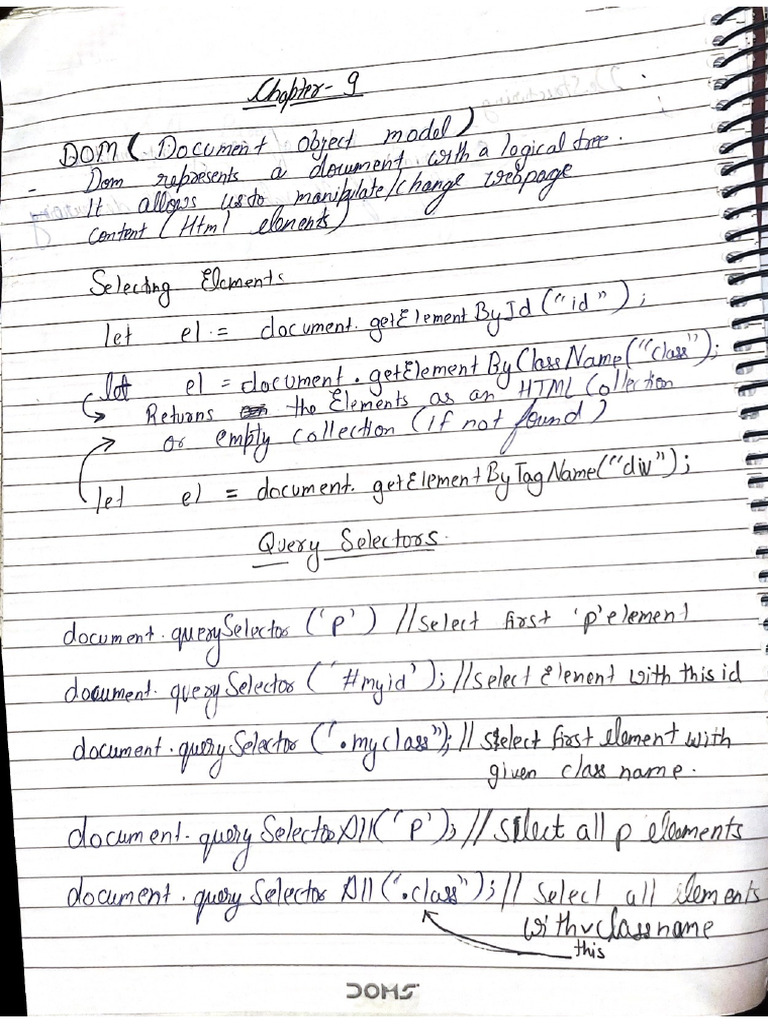 Chapter - 9
DOM ( Document object model)
- Dom represents a document with a logical tree.
It allows us to manipulate/change webpage
content (Html elements)
Selecting Elements
let el = document.getElementById("id");
let el = document.getElementByClassName("class");
Returns the Elements as an HTML Collection
or empty collection (if not found)
let el = document.getElementByTagName("div");
Query Selectors.
document.querySelector ('p') //select first 'p' element
document.querySelector ('#myid'); //select Element with this id
document.querySelector ('.myclass"); // select first element with
given class name.
document.querySelectorAll('p'); // select all p elements
document.querySelectorAll('.class"); // select all elements
with classname
this
DOMS